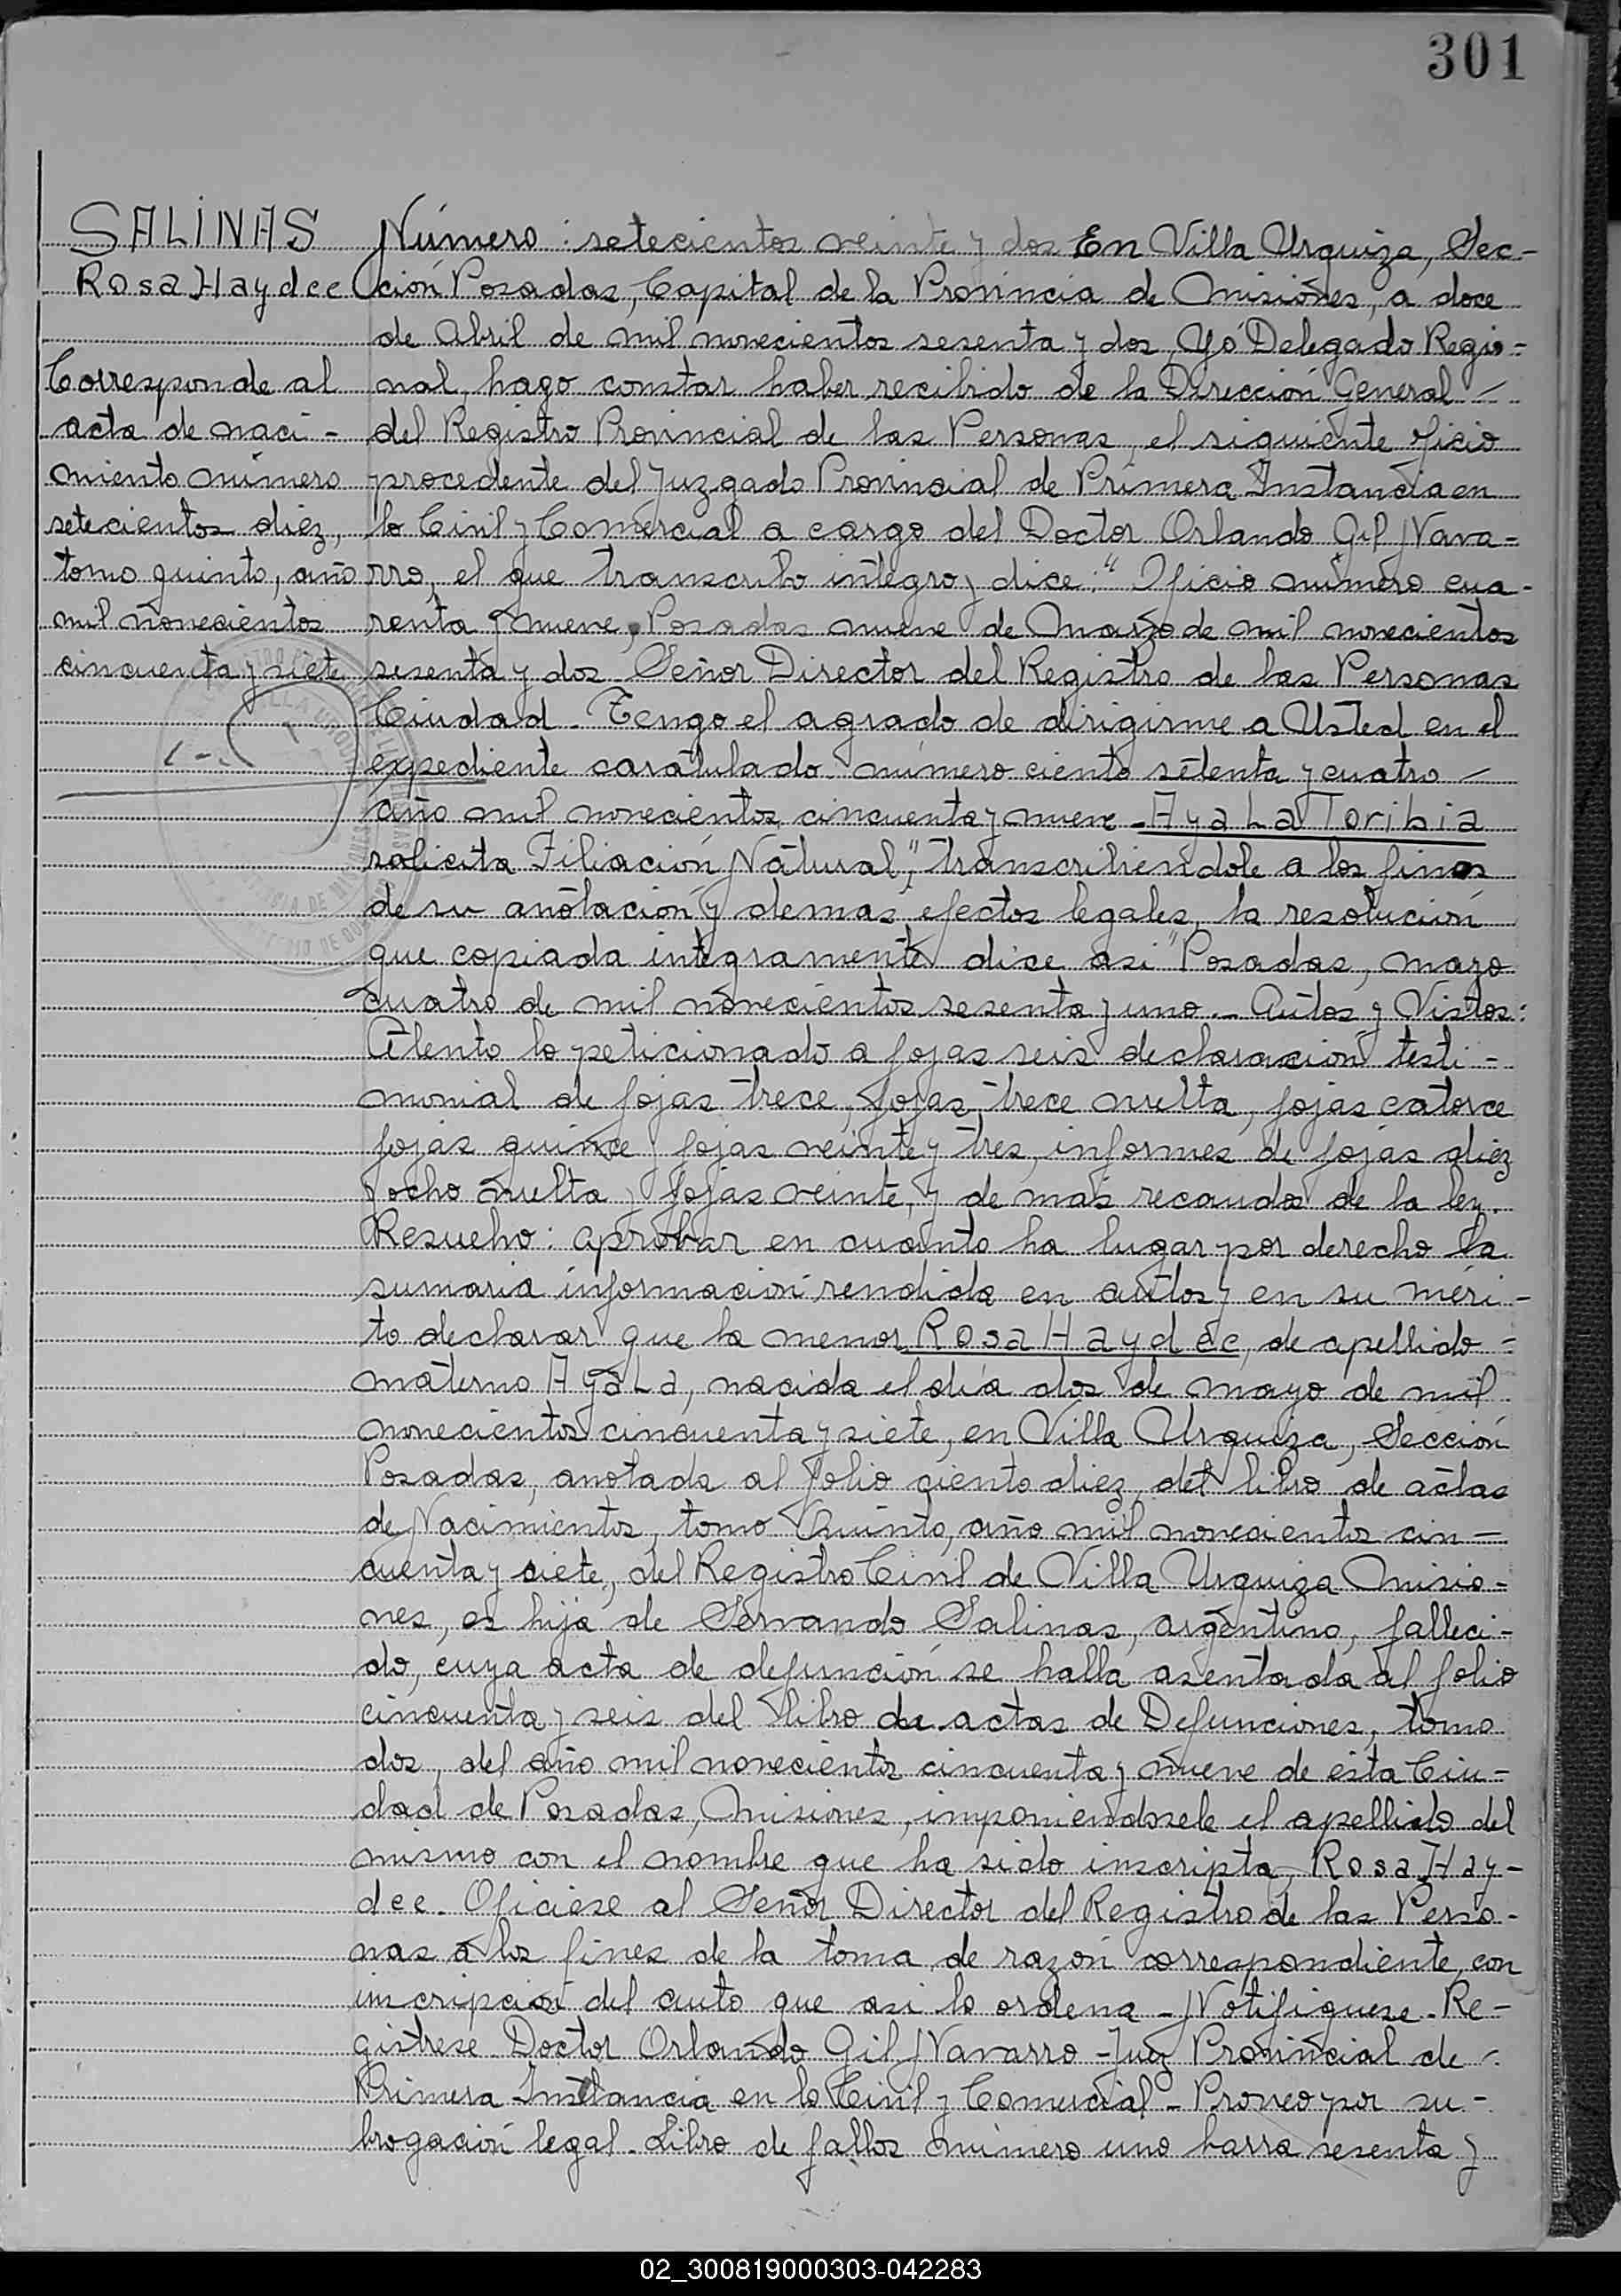 301
SALINAS
Rosa Haydee
Corresponde al
acta de naci-
miento número
setecientos diez,
tomo quinto, año
mil novecientos
cincuenta y siete
Número: setecientos veinte y dos En Villa Urquiza, Sec-
ción Posadas, Capital de la Provincia de Misiones, a doce
de Abril de mil novecientos sesenta y dos, Yó Delegado Regio-
nal, hago constar haber recibido de la Dirección General
del Registro Provincial de las Personas, el siguiente oficio
procedente del Juzgado Provincial de Primera Instancia en
lo Civil y Comercial a cargo del Doctor Orlando Gil Nava-
rro, el que transcribo integro y dice: "Oficio número cua-
renta y nueve, Posadas nueve de Marzo de mil novecientos
sesenta y dos. Señor Director del Registro de las Personas
Ciudad. Tengo el agrado de dirigirme a Usted en el
expediente caratulado número ciento setenta y cuatro
año mil novecientos cincuenta y nueve - Ayala Toribia
solicita Filiación Natural", transcribiendole a los fines
de su anotación y demas efectos legales, la resolución
que copiada integramente dice asi "Posadas, mazo
cuatro de mil novecientos sesenta y uno.- Autos y Vistos:
Atento lo peticionado a fojas seis declaración testi-
monial de fojas trece, fojas trece vuelta, fojas catorce
fojas quince y fojas veinte y tres, informes de fojas diez
y ocho vuelta y fojas veinte, y de mas recaudos de la ley.
Resuelvo: aprobar en cuanto ha lugar por derecho la
sumaria información rendida en autos y en su méri-
to declarar que la menor Rosa Haydee, de apellido
materno Ayala, nacida el día dos de mayo de mil
novecientos cincuenta y siete, en Villa Urquiza, Sección
Posadas, anotada al folio ciento diez, del libro de actas
de Nacimientos, tomo Quinto, año mil novecientos cin-
cuenta y siete, del Registro Civil de Villa Urquiza Misio-
nes, es hija de Servando Salinas, argentino, falleci-
do, cuya acta de defunción se halla asentada al folio
cincuenta y seis del libro de actas de Defunciones, tomo
dos, del año mil novecientos cincuenta y nueve de esta Ciu-
dad de Posadas, Misiones, imponiendosele el apellido del
mismo con el nombre que ha sido inscripta, Rosa Hay-
dee. Oficiese al Señor Director del Registro de las Perso-
nas a los fines de la toma de razón correspondiente, con
inscripción del auto que asi lo ordena - Notifiquese. Re-
gistrese. Doctor Orlando Gil Navarro - Juez Provincial de
Primera Instancia en lo Civil y Comercial - Proveo por su-
brogación legal. Libro de fallos número uno barra sesenta y
02_300819000303-042283